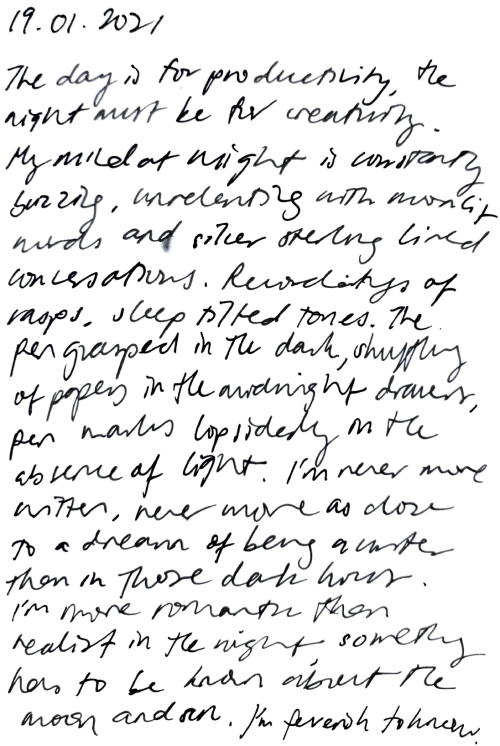 19.01.2021
The day is for productivity, the
night must be for creativity.
My mind at night is constantly
buzzing, unrelenting with moonlit
words and silver sterling lined
conversations. Recordings of
rasps, sleep tilted tones. The
pen grasped in the dark, shuffling
of papers in the midnight drawers,
pen marks lopsidedly in the
absence of light. I'm never more
written, never more as close
to a dream of being a writer
than in those dark hours.
I'm more romantic than
realist in the night something
has to be known about the
moon and sun. I'm feverish to know.